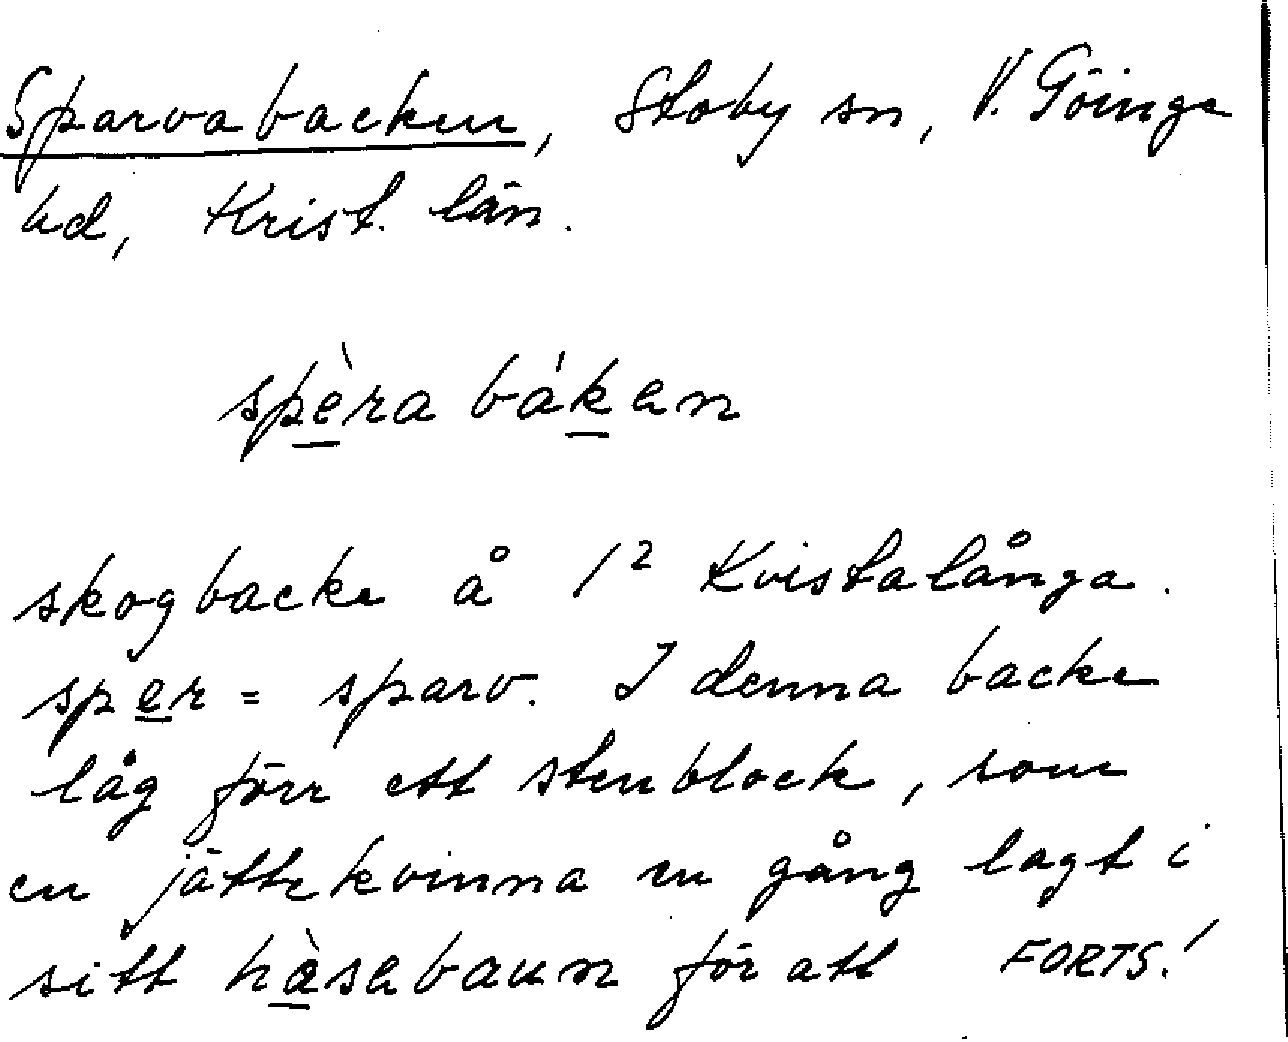 Sparvabacken, Stoby sn, V. Göinge
hd, Krist. län.
spèra báken
skogbacke å 1² Kvistalånga.
sper = sparv. I denna backe
låg förr ett stenblock, som
en jättekvinna en gång lagt i
sitt hàsebaun för att FORTS!